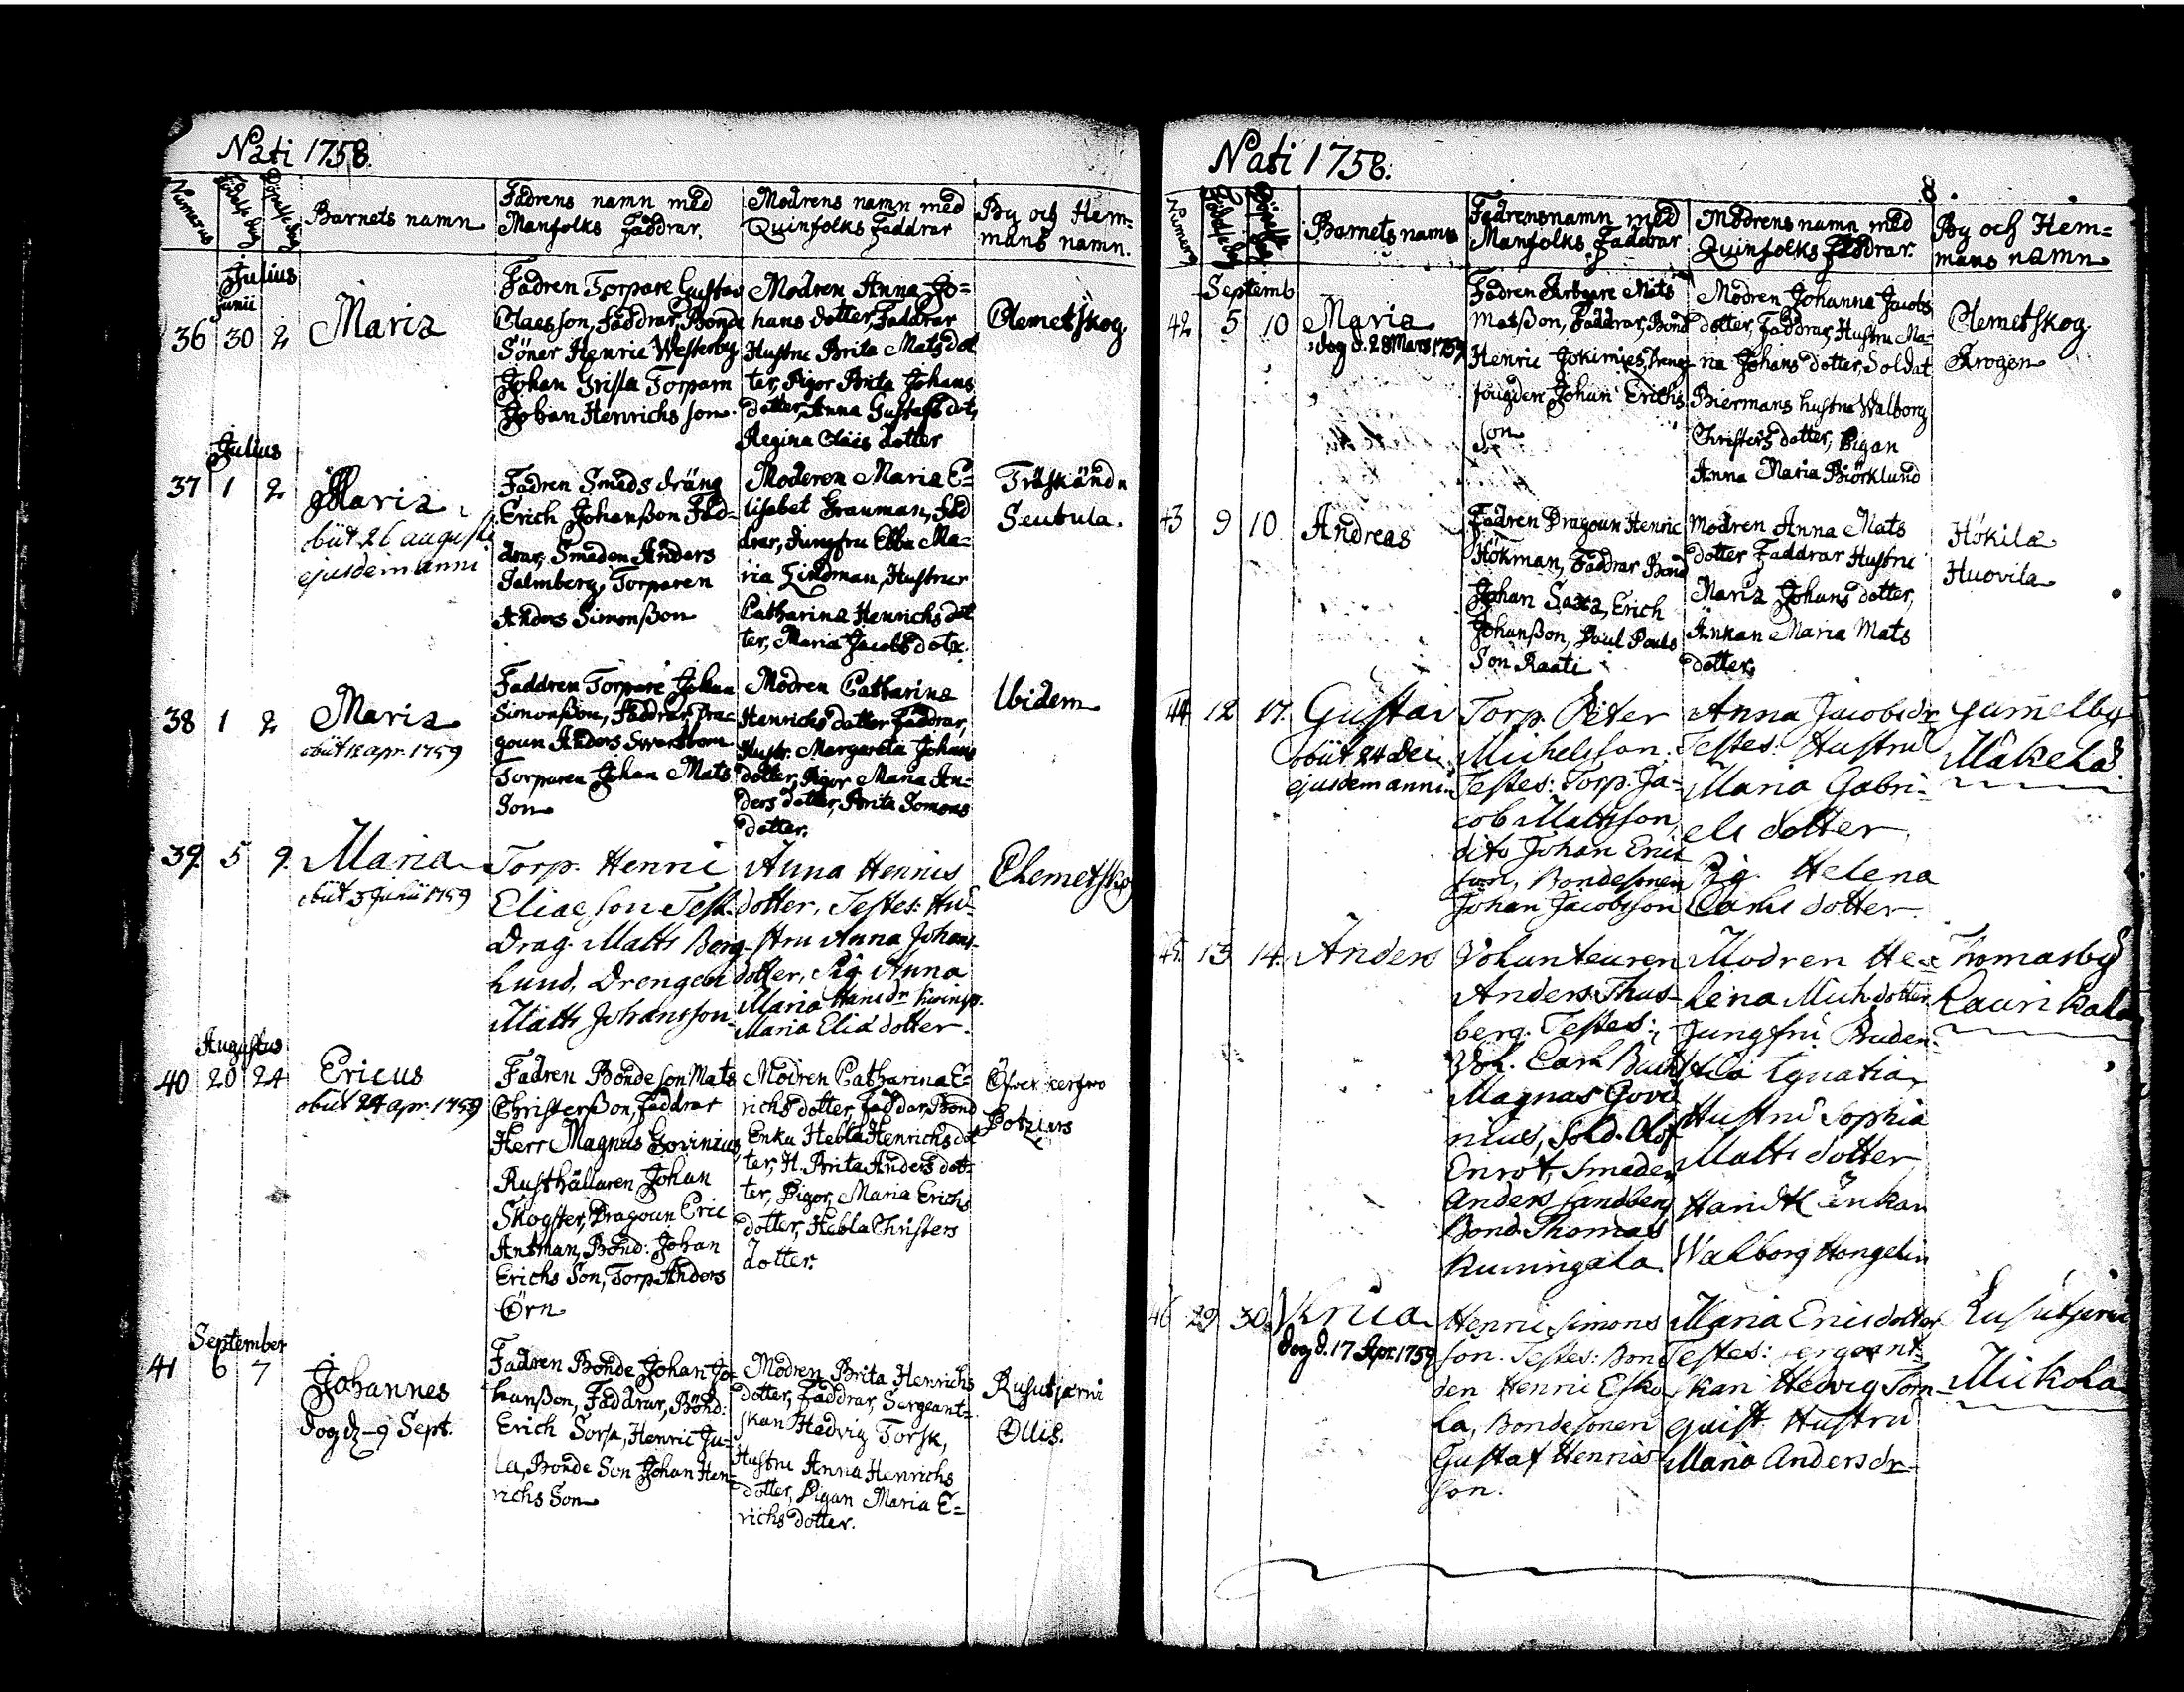 Nati 1758.
Numerus
Födelse dag
Döpelse dag
Barnets namn
Fadrens namn med
Manfolks Faddrar.
Modrens namn med
Quinfolks Faddrar
By och Hem-
mans namn.
Julius
Junii
36 30 2
Maria
Fadren Torpare Gustav
Claesson, Faddrar, Bonde
Söner Henric Westerby
Johan Grissa Torparn
Johan Henrichs son.
Modren Anna Jo-
hans dotter, Faddrar
Hustru Brita Mats dot
ter, Pigor Brita Johans
dotter, Anna Gustafs dot,
Regina Clais dotter
Clemetskog
Julius
37 1 2
Maria
obiit 26 augusti
ejusdem anni
Fadren Smeds dräng
Erich Johanßon Fad-
drar, Smeden Anders
Salmberg, Torparen
Anders Simonßon
Moderen Maria E-
lisabet Grauman, Fad
drar, Jungfru Ebba Ma-
ria Lindman, Hustrur
Catharina Henrichs dot
ter, Maria Jacobs dotr.
Träskända
Seutula.
38 1 2
Maria
obiit 12 apr. 1759
Faddren Torpare Johan
Simonßon, Faddrar, Dra-
goun Anders
Torparen Johan Mats
Son
Modren Catharina
Henrichs dotter Faddrar,
Hustr. Margareta Johans
dotter, Pigor Maria An-
ders dotter, Brita Somons
dotter.
Ibidem
39. 5 9.
Maria
obiit 3 Junii 1759
Torp. Henric
Eliae son Test.
Drag. Matts Berg-
lund, Drengen
Matts Johansson
Anna Henrics
dotter, Testes: Hu-
stru Anna Johans-
dotter, Pig. Anna
Maria Hans dr
Maria Elia dotter.
Clemetskog
Augustus
40 20 24
Ericus
obiit 24 apr. 1759
Fadren Bonde son Mats
Christerßon, Faddrar
Herr Magnus Govinius,
Rusthållaren Johan
Skogster, Dragoun Eric
Antman, Bond: Johan
Erichs Son, Torp. Anders
Örn
Modren Catharina E-
richs dotter, Faddar, Bond
Enka Hebla Henrichs dot
ter, H. Brita Anders dot-
ter, Pigor, Maria Erichs
dotter, Hebla Christers
dotter.
September
41 6 7
Johannes
dog d. 9 Sept.
Fadren Bonde Johan Jo-
hanßon, Faddrar, Bond:
Erich Sorsa, Henric Ju-
la, Bonde Son Johan Hen-
richs Son
Modren Brita Henrichs
dotter, Faddrar, Sergeant-
skan Hedvig Torsk,
Hustru Anna Henrichs
dotter, Pigan Maria E-
richs dotter.
Rusutjerni
Ollis.
Nati 1758.
8.
Numerus
Födelse dag
Döpelse dag
Barnets namn
Fadrens namn med
Manfolks Faddrar
Modrens namn med
Quinfolks Faddrar.
By och Hem-
mans namn
Septemb
42. 5 10
Maria
dog d. 28 Mars 1759
Fadren Mats
Matßon, Faddrar, Bond
Henric Jokimies, Dreng
fougden Johan Erichs
son
Modren Johanna Jacobs
dotter, Faddrar, Hustru Ma-
ria Johans dotter, Soldat
Biermans hustru Walborg
Christers dotter, Pigan
Anna Maria Biörklund
Clemetskog
Krogen
43 9 10
Andreas
Fadren Dragoun Henric
Hökman, Faddrar Bond
Johan Saxa, Erich
Johanßon, Paul Pauls
Son Raati
Modren Anna Mats
dotter Faddrar Hustru
Maria Johans dotter,
Änkan Maria Mats
dotter.
Hökila
Huovila
44 12 17.
Gustav
obiit 24 Dec.
ejusdem anni
Torp. Peter
Michelsson.
Testes: Torp. Ja-
cob Mattsson,
dito Johan Erics
son, Bondesonen
Johan Jacobsson
Anna Jacobs dr
Testes: Hustru
Maria Gabri-
els dotter
Pig. Helena
Carls dotter.
Gamelby
Mäkelä.
45. 13 14.
Anders
Volunteuren
Anders Thus-
berg. Testes:
Vol. Carl
Magnus Govi
nius, Sold. Olof
Enrot, Smeden
Anders Sandberg
Bond. Thomas
Kuningala.
Modren He-
lena Mich. dotter
Jungfru Buden-
Ignatia
Hustru Sophia
Matts dotter
Enkan
Walborg Hongelin
Thomasby
Laurikala
46 29 30.
Ulrica
dog d. 17 Apr. 1759
Henric Simons
son. Testes: Bon
den Henric Esko
la, Bondesonen
Gustaf Henrics
son.
Maria Erics dotter
Testes: Sergeant-
skan Hedvig Torn
quist Hustru
Maria Anders dr
Rusutjerni
Mickola